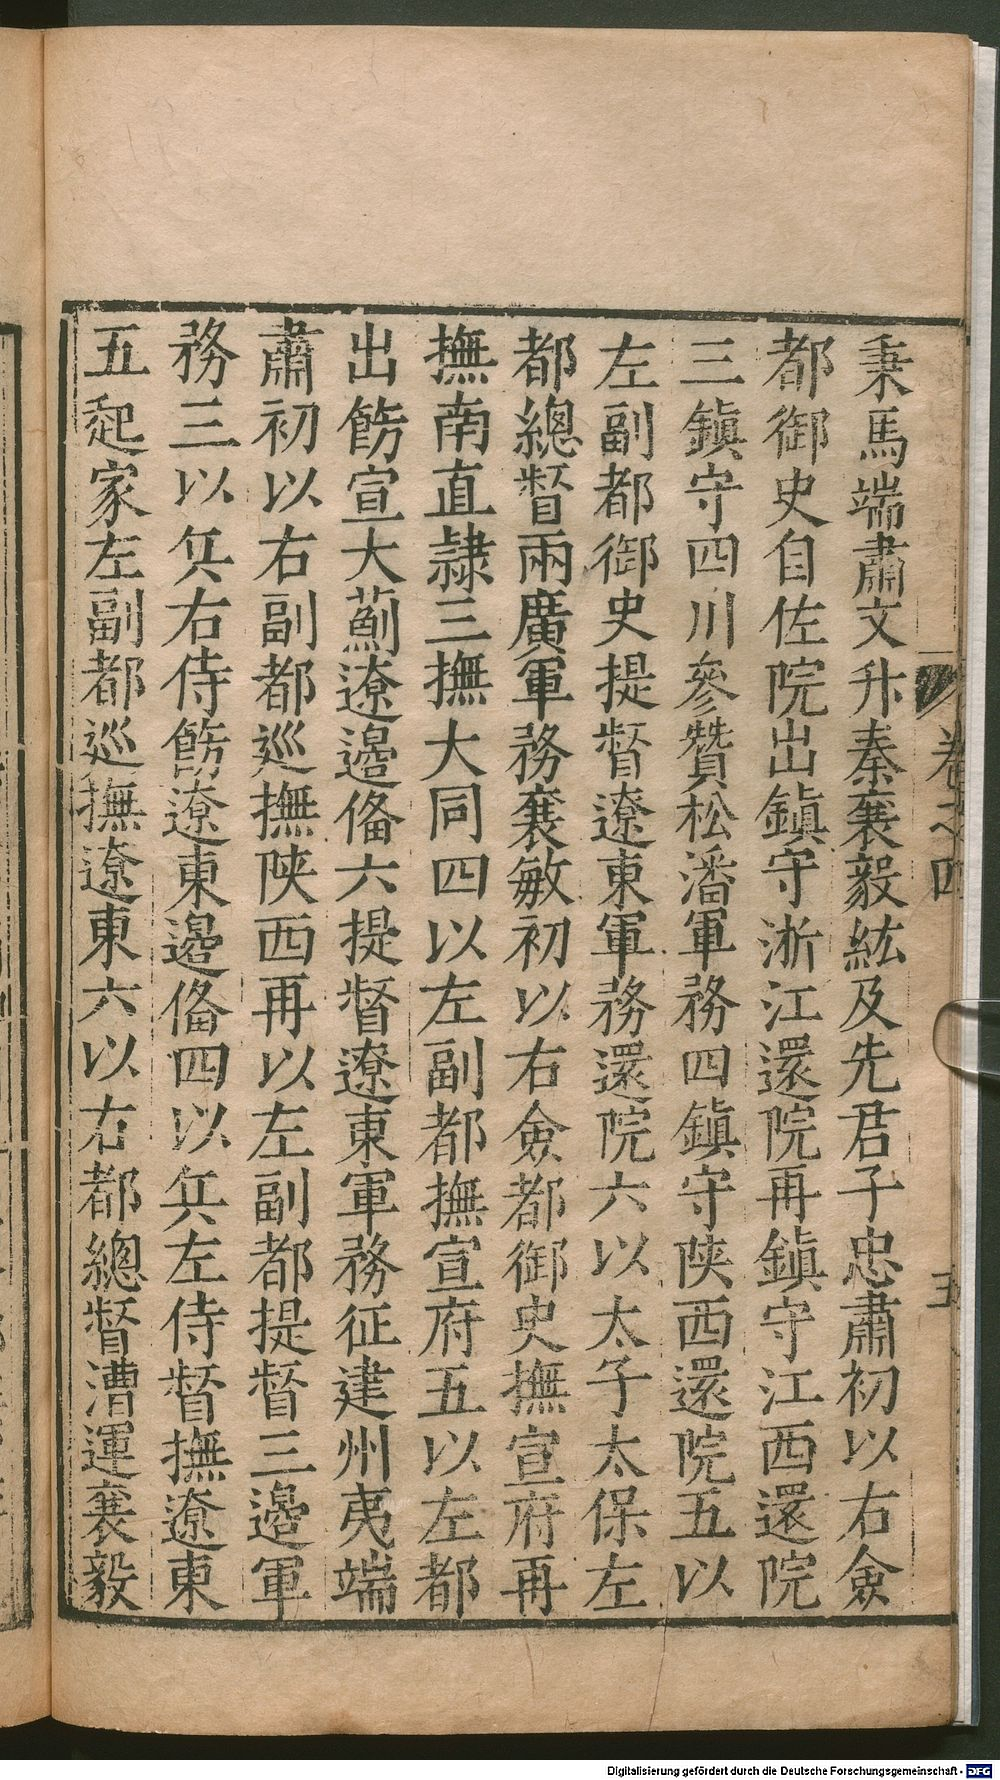 秉馬端肅文升秦襄毅紘及先君子忠肅初以右僉
都御史自佐院出鎮守浙江還院再鎮守江西還院
三鎮守四川參贊松潘軍務四鎮守陝西還院五以
左副都御史提督遼東軍務還院六以太子太保左
都總督兩廣軍務襄敏初以右僉都御史撫宣府再
撫南直隸三撫大同四以左副都撫宣府五以左都
出餝宣大薊遼邉俻六提督遼東軍務征建州夷端
肅初以右副都廵撫陝西再以左副都提督三邉軍
務三以兵右侍餝遼東邉俻四以兵左侍督撫遼東
五起家左副都巡撫遼東六以右都總督漕運襄毅
卷之四
五
Digitalisierung gefördert durch die Deutsche Forschungsgemeinschaft - DFG